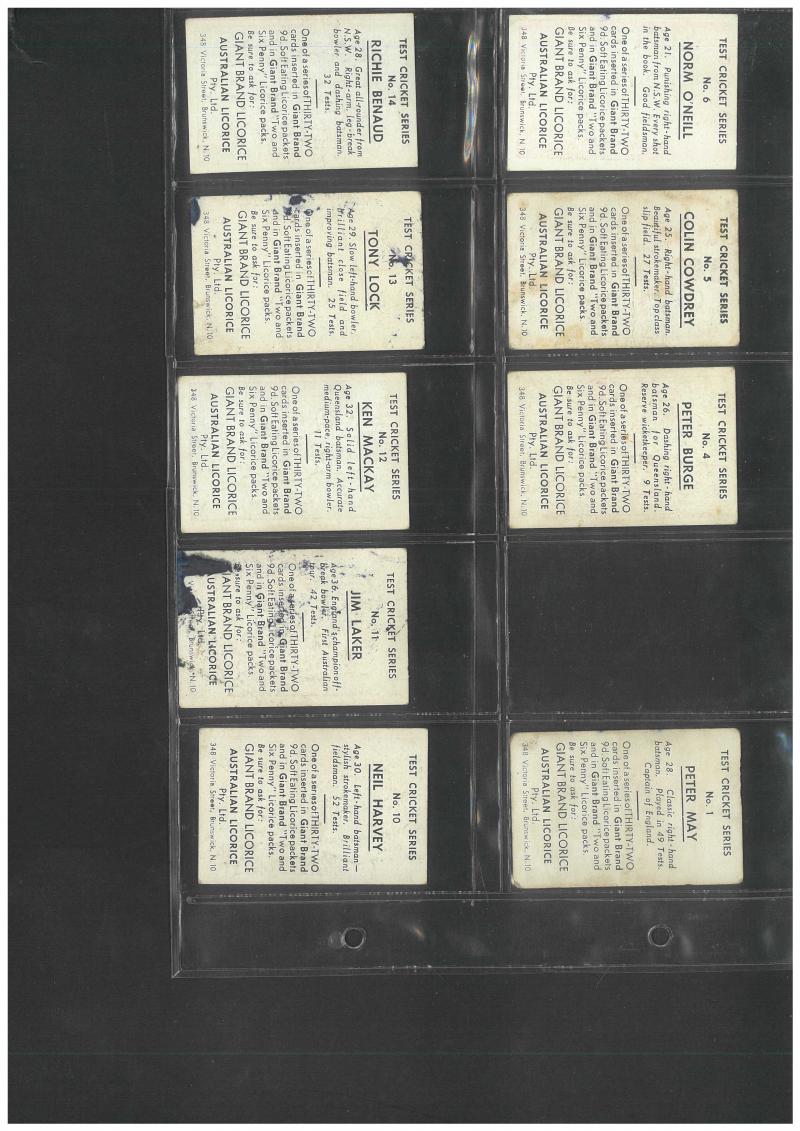 TEST CRICKET SERIES
No. 6
NORM O'NEILL
Age 21. Punishing right-hand
batsman from N.S.W. Every shot
in the book. Good fieldsman.
One of a series of THIRTY-TWO
cards inserted in Giant Brand
9d. Soft Eating Licorice packets
and in Giant Brand "Two and
Six Penny" Licorice packs.
Be sure to ask for:
GIANT BRAND LICORICE
AUSTRALIAN LICORICE
Pty. Ltd.
348 Victoria Street, Brunswick, N.10
TEST CRICKET SERIES
No. 5
COLIN COWDREY
Age 25. Right-hand batsman.
Beautiful strokemaker. Top class
slip field. 27 Tests.
One of a series of THIRTY-TWO
cards inserted in Giant Brand
9d. Soft Eating Licorice packets
and in Giant Brand "Two and
Six Penny" Licorice packs.
Be sure to ask for:
GIANT BRAND LICORICE
AUSTRALIAN LICORICE
Pty. Ltd.
348 Victoria Street, Brunswick, N.10
TEST CRICKET SERIES
No. 4
PETER BURGE
Age 26. Dashing right-hand
batsman for Queensland.
Reserve wicketkeeper. 9 Tests.
One of a series of THIRTY-TWO
cards inserted in Giant Brand
9d. Soft Eating Licorice packets
and in Giant Brand "Two and
Six Penny" Licorice packs.
Be sure to ask for:
GIANT BRAND LICORICE
AUSTRALIAN LICORICE
Pty. Ltd.
348 Victoria Street, Brunswick, N.10
TEST CRICKET SERIES
No. 1
PETER MAY
Age 28. Classic right-hand
batsman. Played in 49 Tests.
Captain of England.
One of a series of THIRTY-TWO
cards inserted in Giant Brand
9d. Soft Eating Licorice packets
and in Giant Brand "Two and
Six Penny" Licorice packs.
Be sure to ask for:
GIANT BRAND LICORICE
AUSTRALIAN LICORICE
Pty. Ltd.
348 Victoria Street, Brunswick, N.10
TEST CRICKET SERIES
No. 14
RICHIE BENAUD
Age 28. Great all-rounder from
N.S.W. Right-arm, leg-break
bowler and dashing batsman.
32 Tests.
One of a series of THIRTY-TWO
cards inserted in Giant Brand
9d. Soft Eating Licorice packets
and in Giant Brand "Two and
Six Penny" Licorice packs.
Be sure to ask for:
GIANT BRAND LICORICE
AUSTRALIAN LICORICE
Pty. Ltd.
348 Victoria Street, Brunswick, N.10
TEST CRICKET SERIES
No. 13
TONY LOCK
Age 29. Slow left-hand bowler.
Brilliant close field and
improving batsman. 25 Tests.
One of a series of THIRTY-TWO
cards inserted in Giant Brand
9d. Soft Eating Licorice packets
and in Giant Brand "Two and
Six Penny" Licorice packs.
Be sure to ask for:
GIANT BRAND LICORICE
AUSTRALIAN LICORICE
Pty. Ltd.
348 Victoria Street, Brunswick, N.10
TEST CRICKET SERIES
No. 12
KEN MACKAY
Age 32. Solid left-hand
Queensland batsman. Accurate
medium-pace, right-arm bowler.
11 Tests.
One of a series of THIRTY-TWO
cards inserted in Giant Brand
9d. Soft Eating Licorice packets
and in Giant Brand "Two and
Six Penny" Licorice packs.
Be sure to ask for:
GIANT BRAND LICORICE
AUSTRALIAN LICORICE
Pty. Ltd.
348 Victoria Street, Brunswick, N.10
TEST CRICKET SERIES
No. 11
JIM LAKER
Age 36. England's champion off-
break bowler. First Australian
tour. 42 Tests.
One of a series of THIRTY-TWO
cards inserted in Giant Brand
9d. Soft Eating Licorice packets
and in Giant Brand "Two and
Six Penny" Licorice packs.
Be sure to ask for:
GIANT BRAND LICORICE
AUSTRALIAN LICORICE
Pty. Ltd.
Street, Brunswick, N.10
TEST CRICKET SERIES
No. 10
NEIL HARVEY
Age 30. Left-hand batsman—
stylish strokemaker. Brilliant
fieldsman. 52 Tests.
One of a series of THIRTY-TWO
cards inserted in Giant Brand
9d. Soft Eating Licorice packets
and in Giant Brand "Two and
Six Penny" Licorice packs.
Be sure to ask for:
GIANT BRAND LICORICE
AUSTRALIAN LICORICE
Pty. Ltd.
348 Victoria Street, Brunswick, N.10